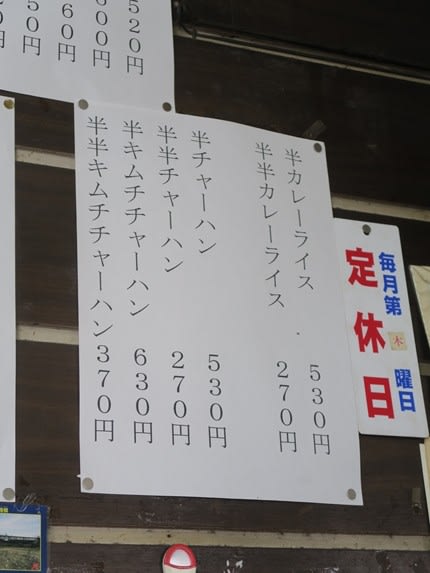 半カレーライス 530円
半半カレーライス 270円
半チャーハン 530円
半半チャーハン 270円
半キムチチャーハン 630円
半半キムチチャーハン 370円
520円
600円
560円
50円
毎月第 木 曜日
定休日